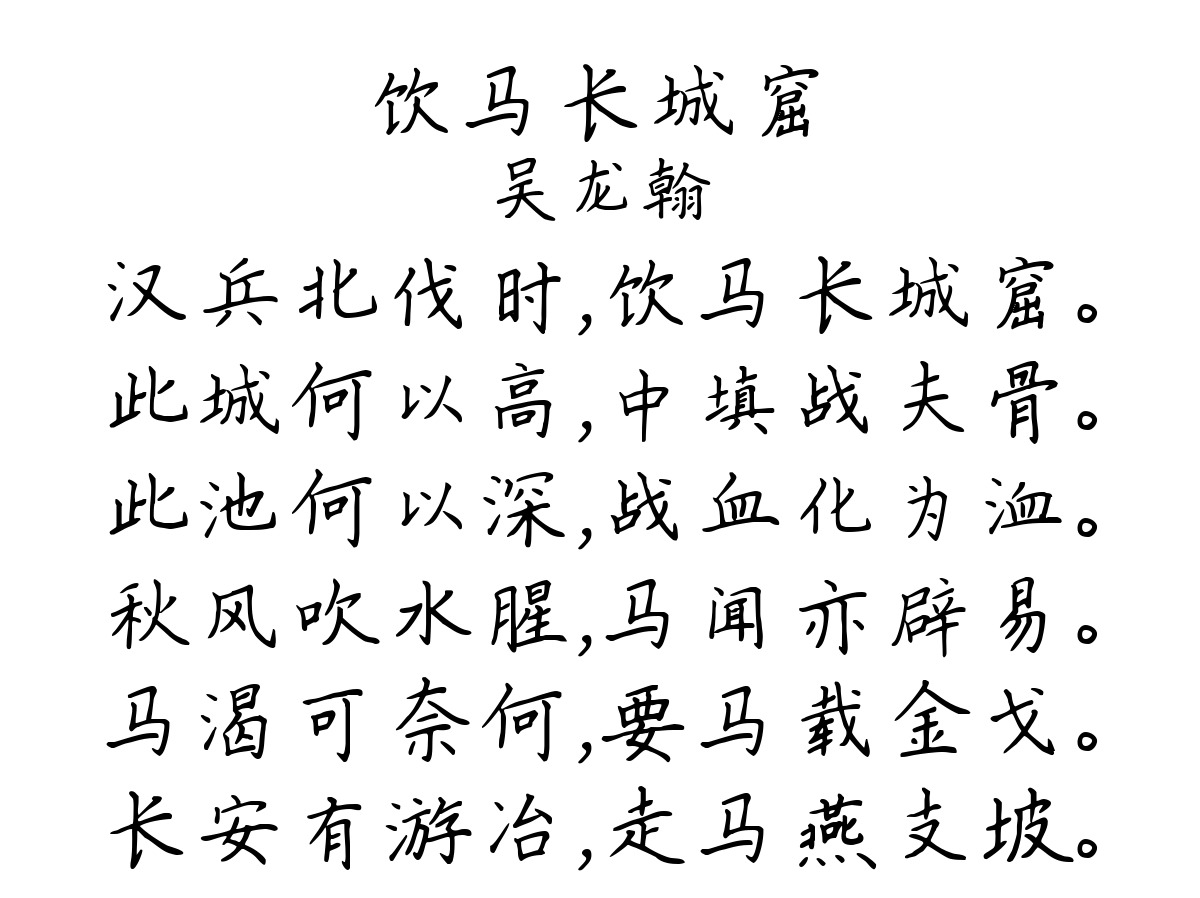 饮马长城窟
吴龙翰
汉兵北伐时,饮马长城窟。
此城何以高,中填战夫骨。
此池何以深,战血化为洫。
秋风吹水腥,马闻亦辟易。
马渴可奈何,要马载金戈。
长安有游冶,走马燕支坡。